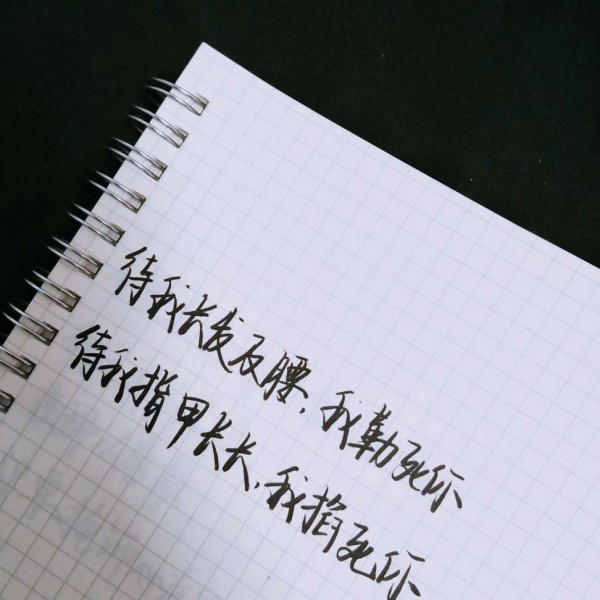 待我长发及腰，我勒死你
待我指甲长长，我掐死你